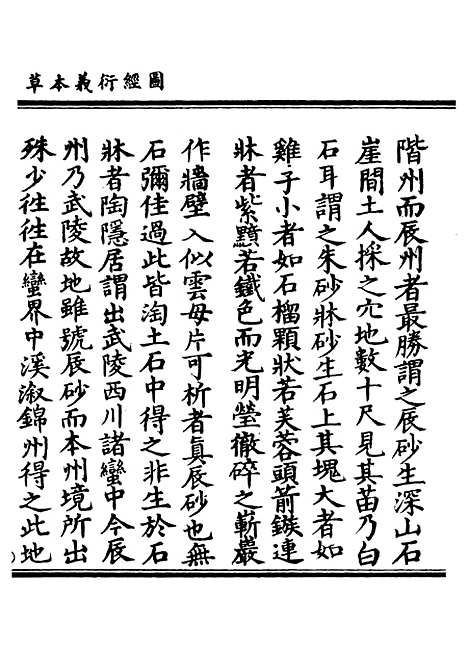 圖經衍義本草
階州而辰州者最勝謂之辰砂生深山石
崖間土人採之穴地數十尺見其苗乃白
石耳謂之朱砂牀砂生石上其塊大者如
雞子小者如石榴顆狀若芙蓉頭箭鏃連
牀者紫黯若鐵色而光明瑩徹碎之嶄巖
作牆壁入似雲母片可析者真辰砂也無
石彌佳過此皆淘土石中得之非生於石
牀者陶隱居謂出武陵西川諸蠻中今辰
州乃武陵故地雖號辰砂而本州境所出
殊少往往在蠻界中溪溆錦州得之此地